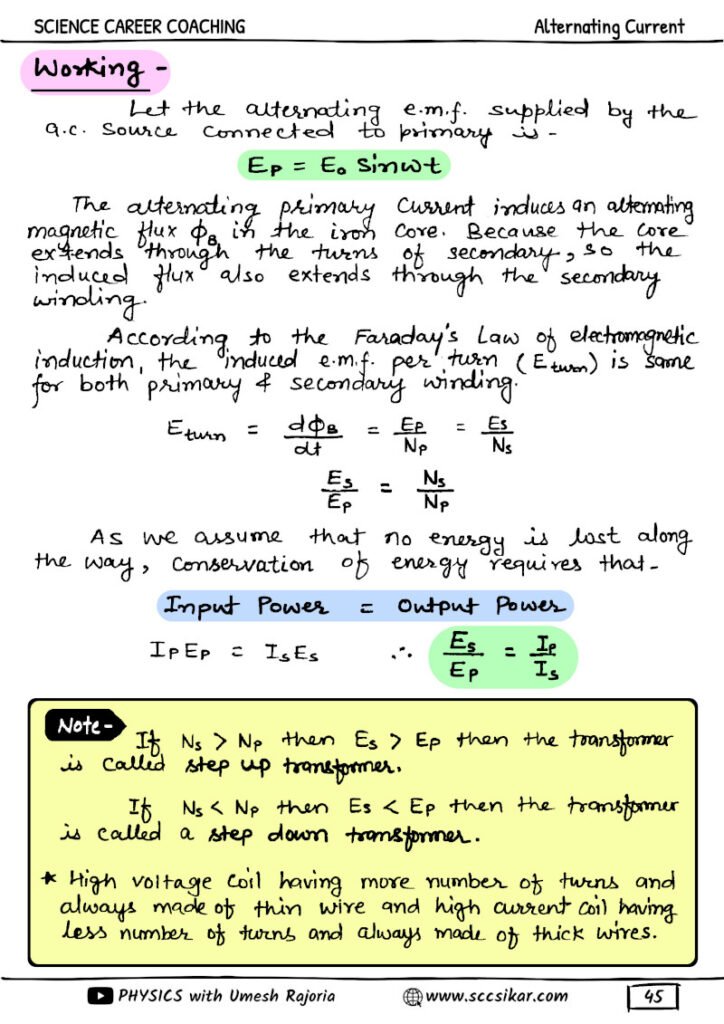 SCIENCE CAREER COACHING Alternating Current
Working -
Let the alternating e.m.f. supplied by the
a.c. source connected to primary is -
Ep = E₀ Sinωt
The alternating primary current induces an alternating
magnetic flux ϕB in the iron core. Because the core
extends through the turns of secondary, so the
induced flux also extends through the secondary
winding.
According to the Faraday's Law of electromagnetic
induction, the induced e.m.f. per turn (Eturn) is same
for both primary & secondary winding.
Eturn = dϕB/dt = Ep/Np = Es/Ns
Es/Ep = Ns/Np
As we assume that no energy is lost along
the way, conservation of energy requires that-
Input Power = Output Power
IpEp = IsEs ∴ Es/Ep = Ip/Is
Note-
If Ns > Np then Es > Ep then the transformer
is called step up transformer.
If Ns < Np then Es < Ep then the transformer
is called a step down transformer.
* High voltage coil having more number of turns and
always made of thin wire and high current coil having
less number of turns and always made of thick wires.
PHYSICS with Umesh Rajoria www.sccsikar.com 45